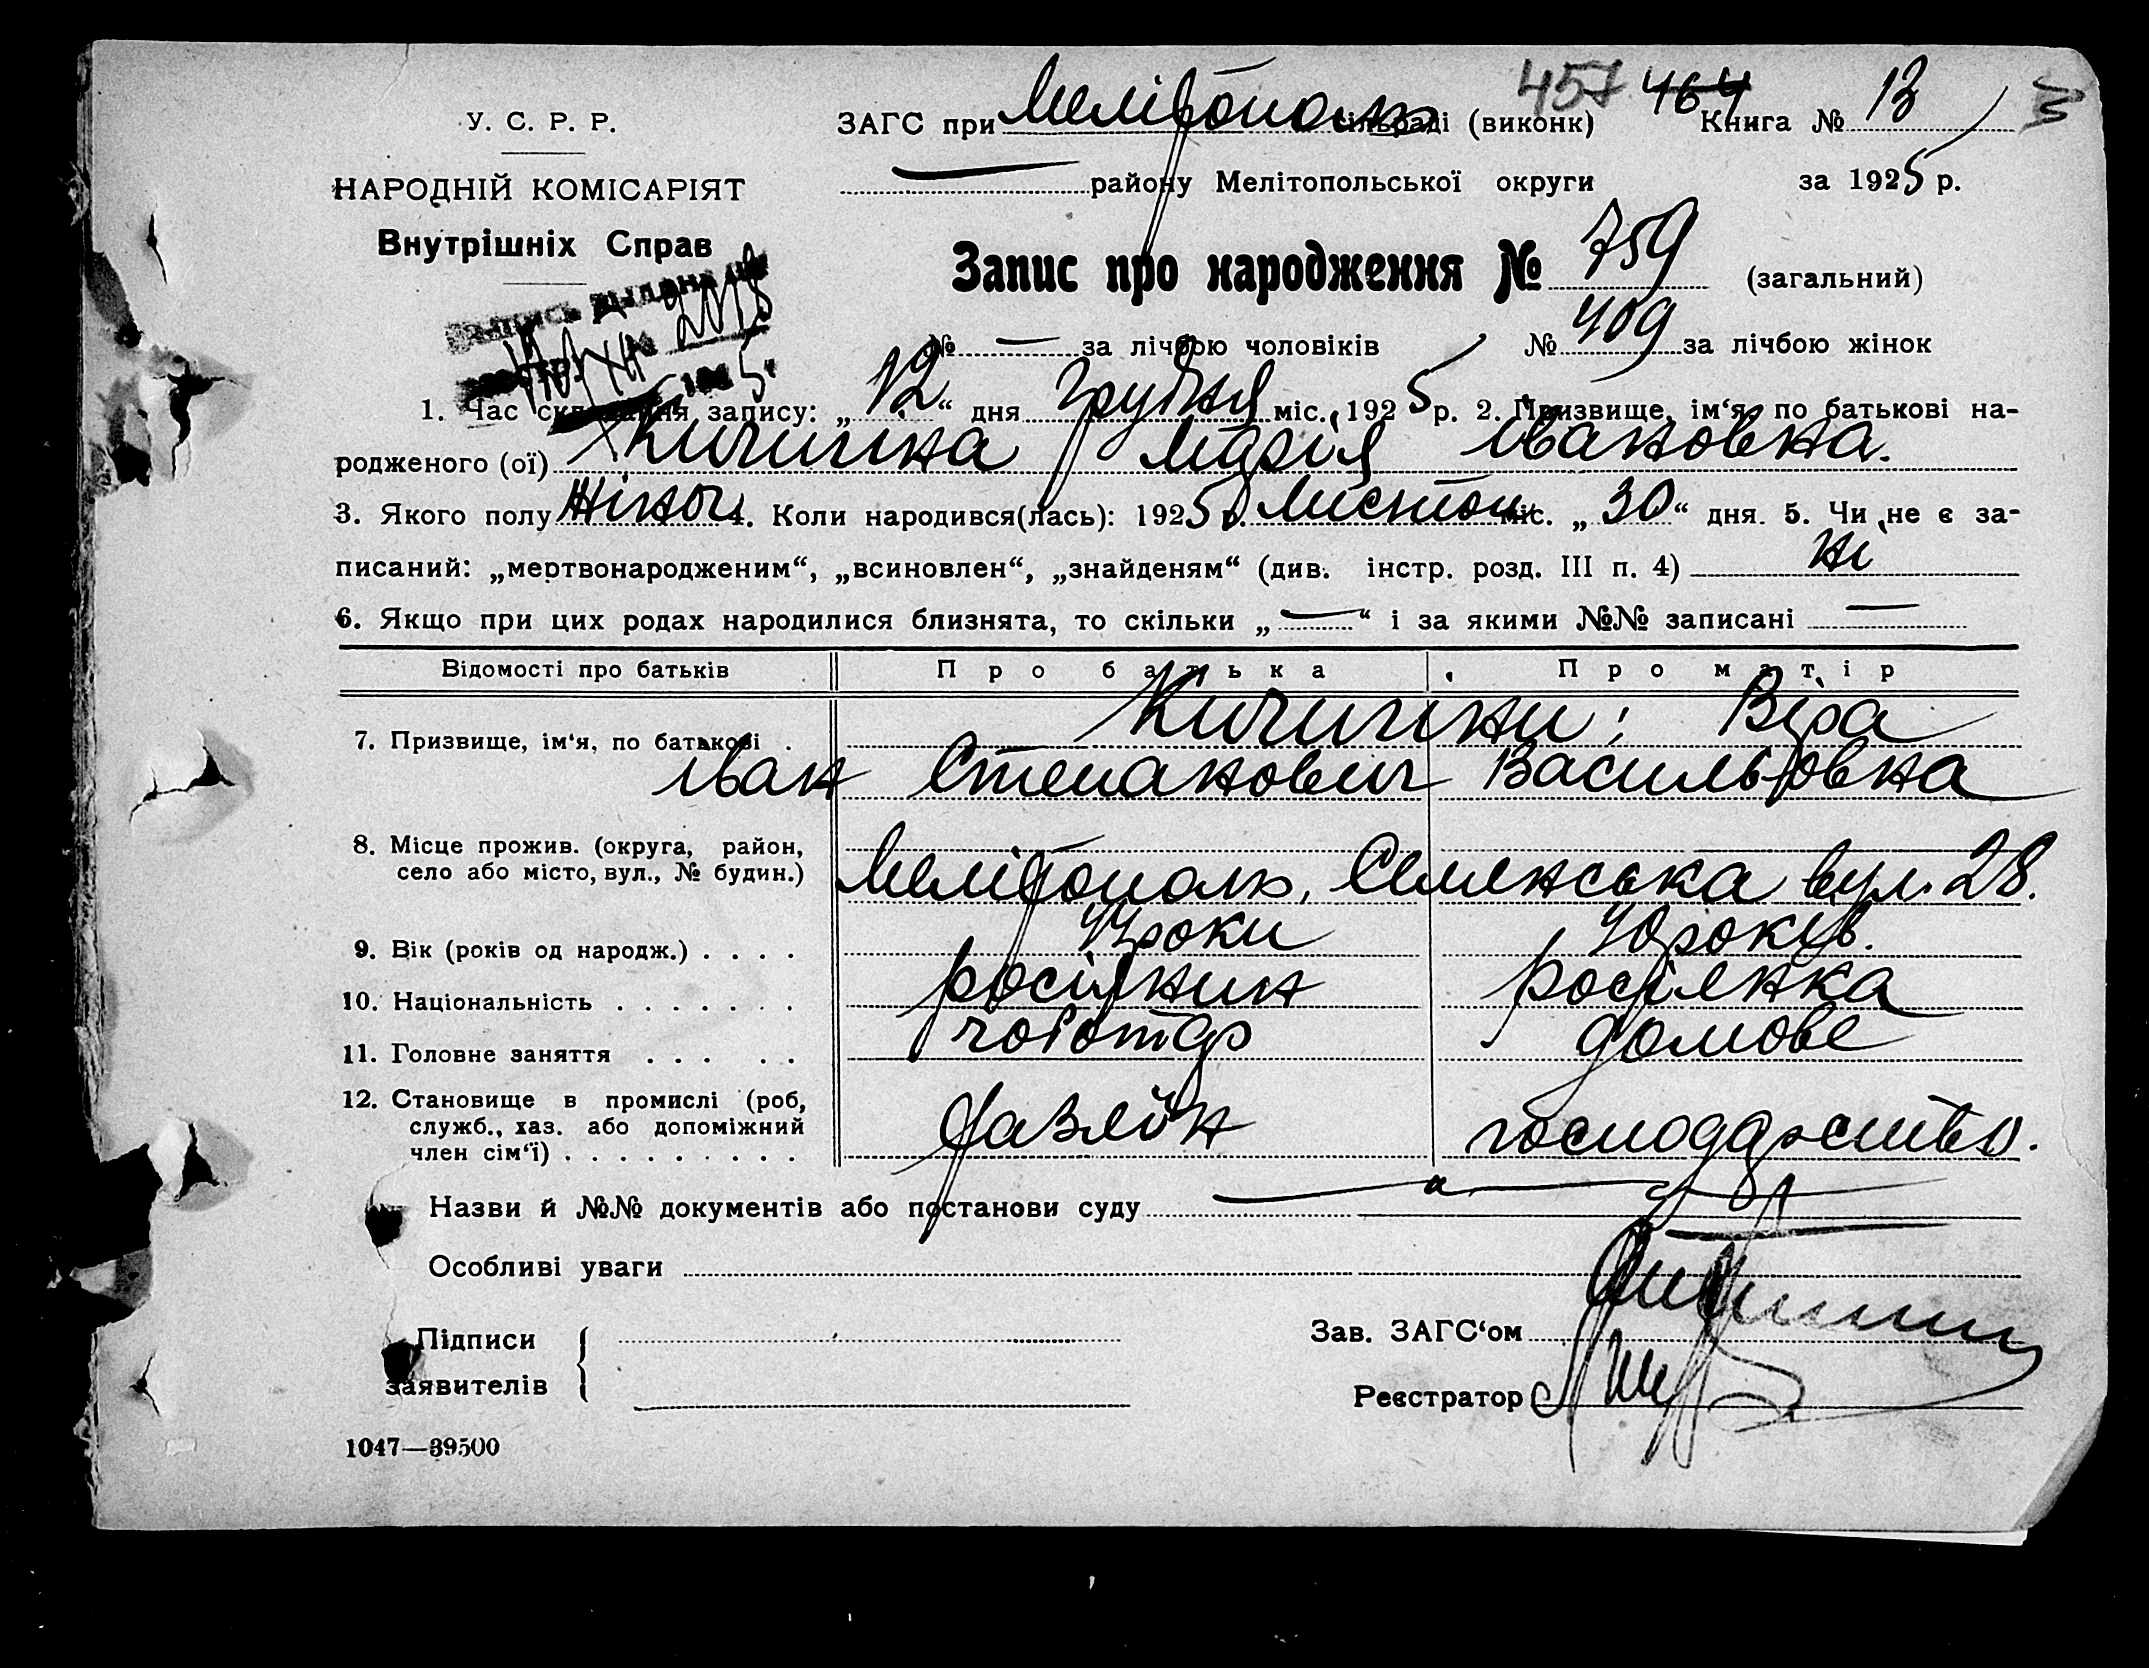 457 464
У. С. Р. Р. ЗАГС при Мелітополь сільраді (виконк) Книга № 13
НАРОДНІЙ КОМІСАРІЯТ — району Мелітопольської округи за 1925 р.
Внутрішніх Справ
Запис про народження № 759 (загальний)
№ — за лічбою чоловіків № 409 за лічбою жінок
1. Час складання запису: „ 12 “ дня Грудня міс. 1925 р. 2. Призвище, ім‘я, по батькові на-
родженого (ої) Кичигина Марія Івановна.
3. Якого полу жіноч. 4. Коли народився(лась): 1925 р. Листоп. міс. „ 30 “ дня. 5. Чи не є за-
писаний: „мертвонародженим“, „всиновлен“, „знайденям“ (див. інстр. розд. III п. 4) ні
6. Якщо при цих родах народилися близнята, то скільки „ — “ і за якими №№ записані —
Відомості про батьків Про батька Про матір
7. Призвище, ім‘я, по батькові . Кичигини: Віра
Іван Степанович Васильовна
8. Місце прожив. (округа, район,
село або місто, вул., № будин.) Мелітополь, Семенська вул. 28.
9. Вік (років од народж.) . . . . роки 40 років.
10. Національність . . . . . . . росіянин росіянка
11. Головне заняття . . . . . чоботар домове
12. Становище в промислі (роб,
служб., хаз. або допоміжний
член сім‘ї) . . . . . . . . . хазяїн господарство.
Назви й №№ документів або постанови суду —
Особливі уваги
Підписи Зав. ЗАГС‘ом
заявителів Реєстратор
1047—39500